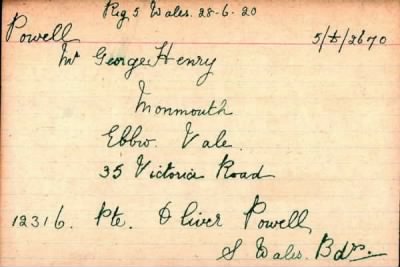 Reg 5 Wales. 28-6-20
Powell
5/E/2670
Mr George Henry
Monmouth
Ebbw Vale.
35 Victoria Road
12316. Pte. Oliver Powell
S Wales. Bdrs.